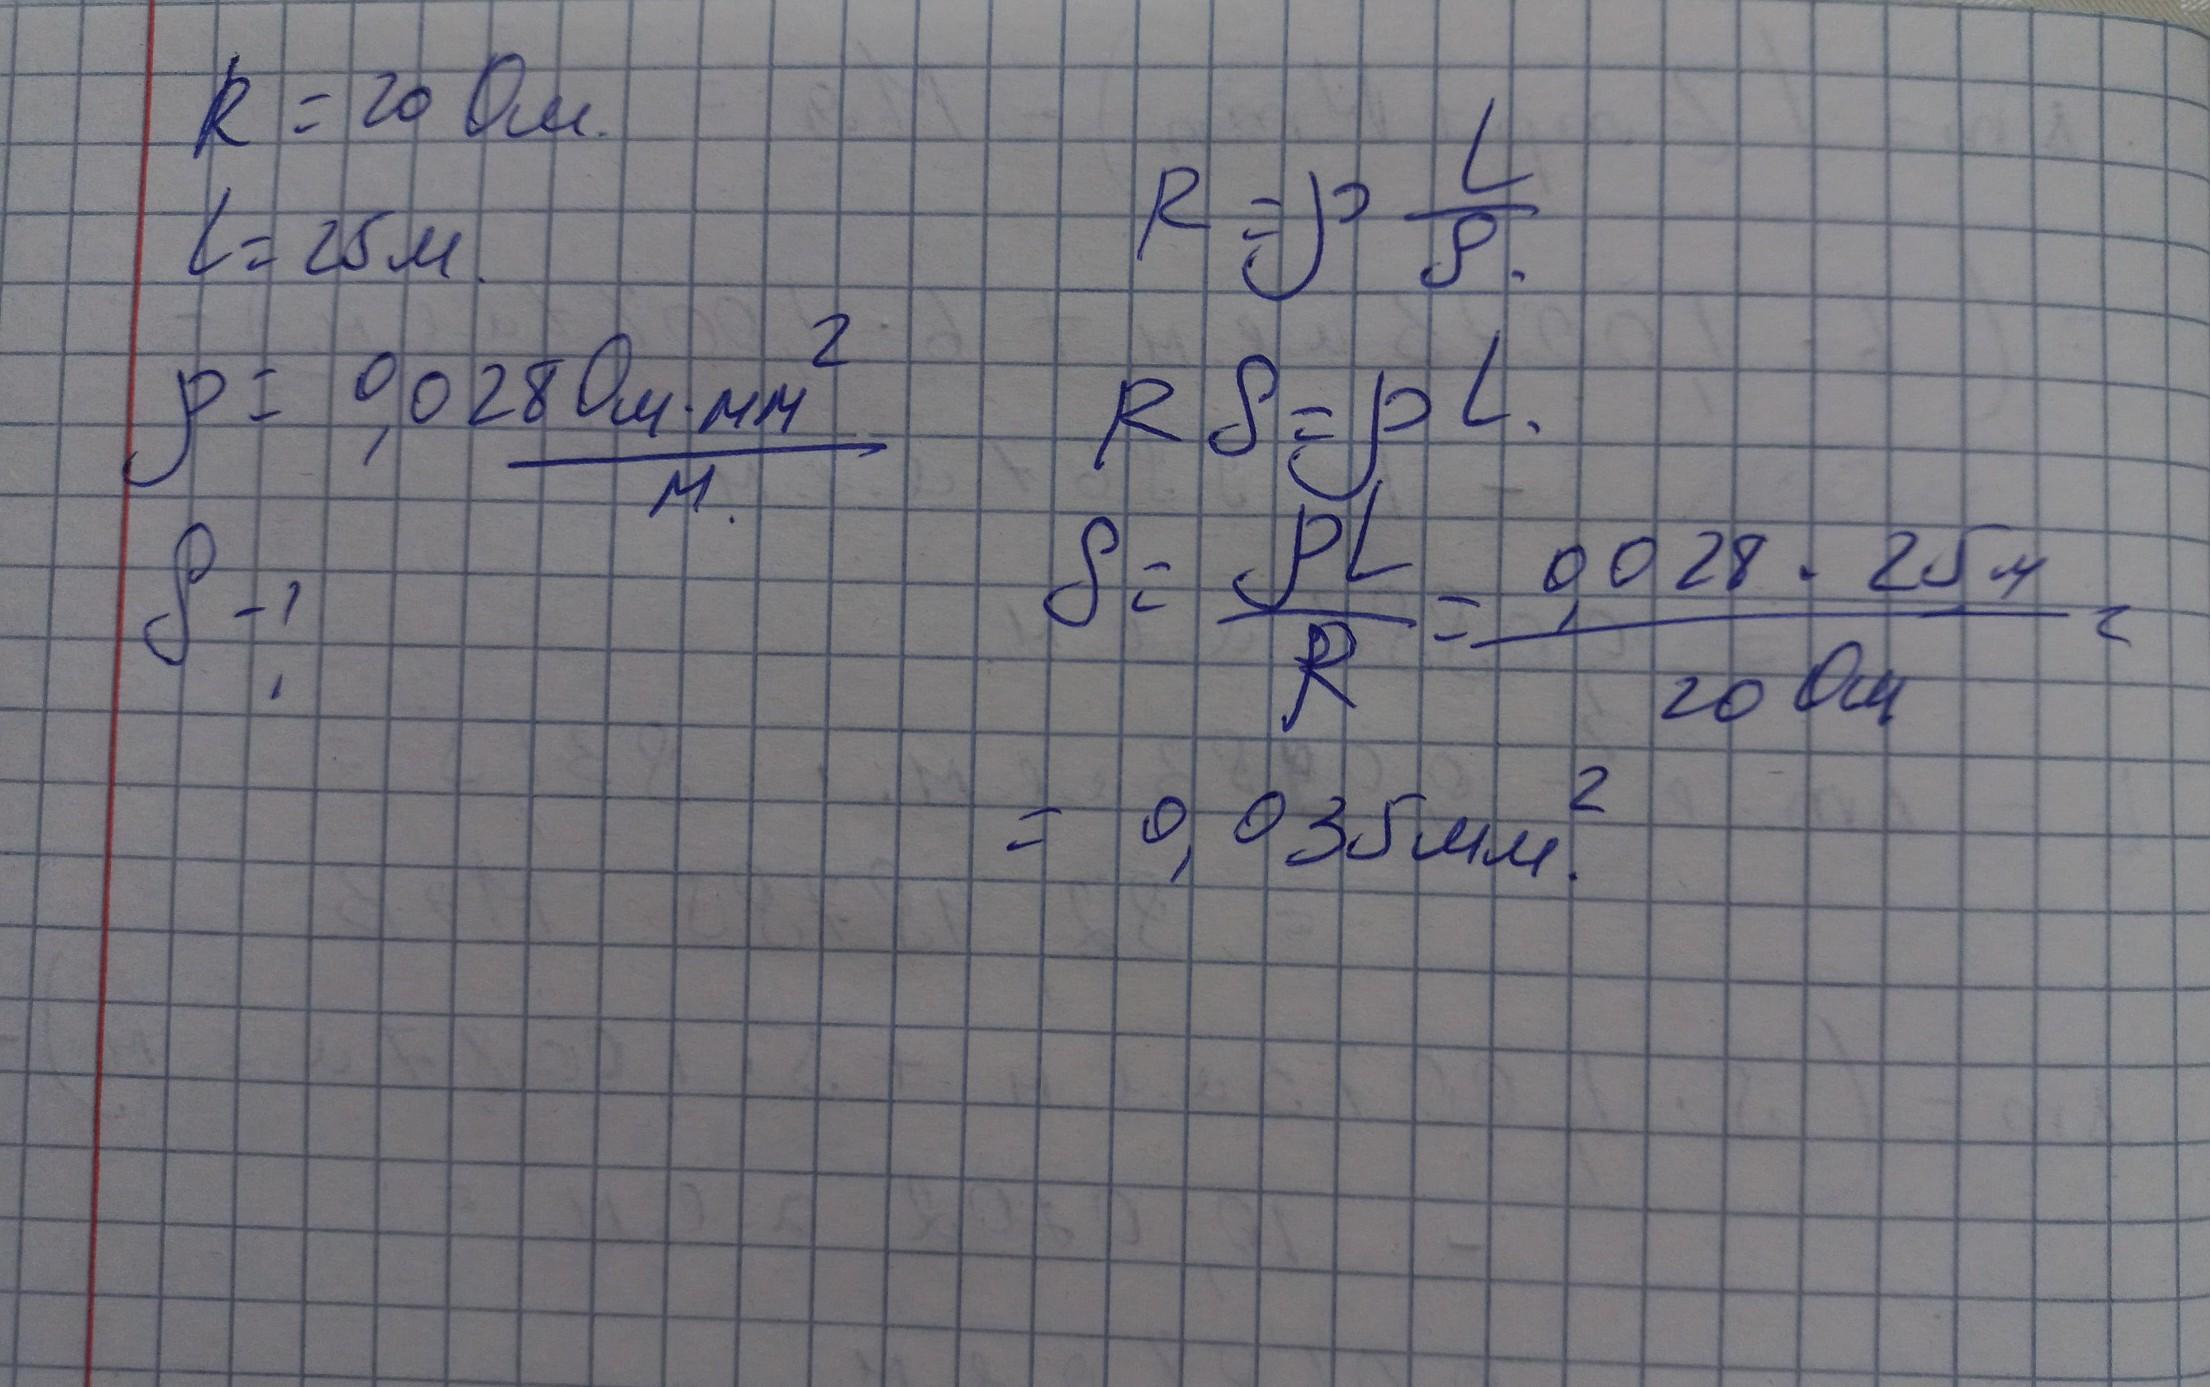 R = 20 Ом.
L = 25 м.
ρ = 0,028 Ом·мм²
м.
S - ?
R = ρ L
S.
R S = ρ L.
S = ρL = 0,028 · 25 м =
R 20 Ом
= 0,035 мм².